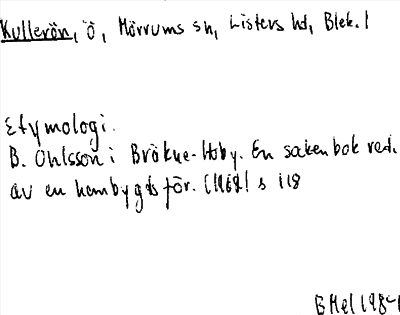 Kullerön, ö, Mörrums sn, Listers hd, Blek. l
Etymologi.
B. Ohlsson i Bräkne-Hoby. En sockenbok red.
av en hembygdsför. (1962) s 118
BHel 1984